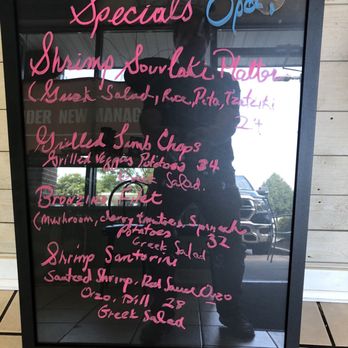 Specials Open
Shrimp Souvlaki Platter
(Greek Salad, Rice, Pita, Tzatziki
24
DER NEW MANAG
Grilled Lamb Chops
Grilled Veggies Potatoes 34
Salad.
Bronzino
(Mushroom, cherry tomatoes, Spinach
potatoes 32
Greek Salad
Shrimp Santorini
Sauteed Shrimp, Red Sauce Orzo
Orzo, Dill 28
Greek Salad